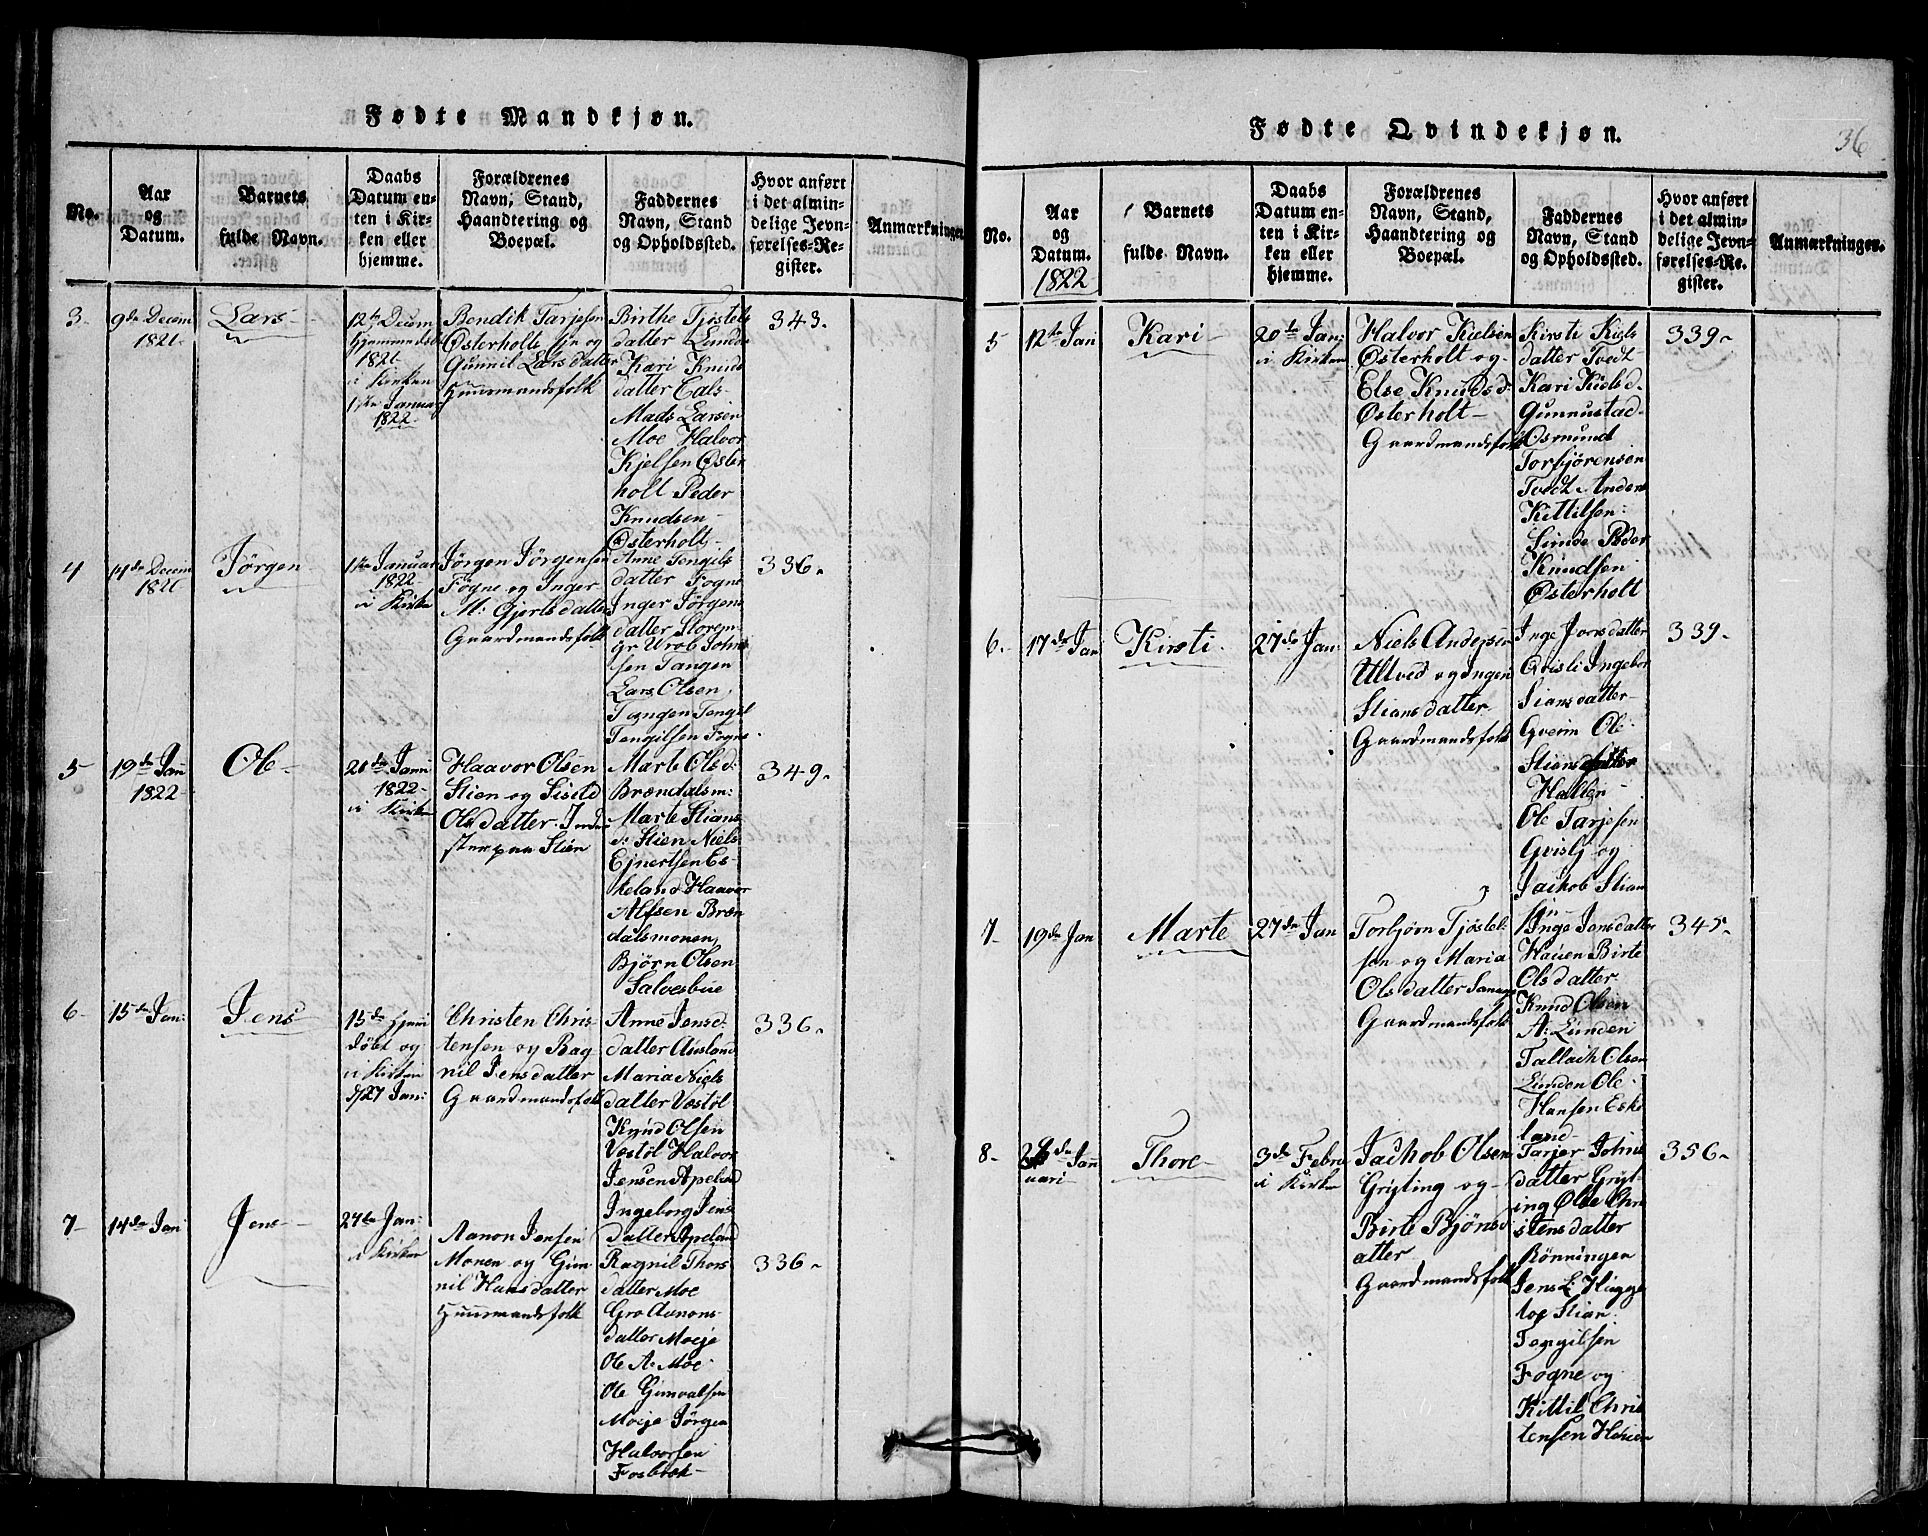 Fødte Mandkjøn.
No.
Aar
og
Datum.
Barnets
fulde Navn.
Daabs
Datum en-
ten i Kir-
ken eller
hjemme.
Forældrenes
Navn, Stand,
Haandtering og
Boepæl.
Faddernes
Navn, Stand
og Opholdssted.
Hvor anført
i det almin-
delige Jevn-
førelses-Re-
gister.
Anmærkninger.
3-
9de Decem
1821.
Lars
12te Decem
hjemmedø
1821
i Kirken
1ste Januar
1822.
Bendik Tarjesen
Østerholt
Gunnil Larsdatter
Huusmandsfolk
Birthe Tjøstels
datter Lunde
Kari Knud
datter Eals-
Mads Larsen
Moe Halvor
Kjelsen Øster
holt Peder
Knudsen-
Østerholt-
343-
4
14de Decem
1821
Jørgen
1ste Januar
1822
i Kirke
Jørgen Jørgensen
Fogne og Inger
M: Gjertsdatter
Gaardmandsfolk
Anne Tengils
datter Fogne
Inger Jørgens
datter Storem-
Johne
sen Tangen
Lars Olsen
Tangen Tengil
Tengilsen Fogne
336-
5
19de Jan
1822
Ole-
20de Janu
1822-
i Kirken
Haavor Olsen
Stien og Siseld
Olsdatter. Inder
ster paa Stien
Marte Olsd:
Brændalsm:
Marte Stians
d: Stien Niels
Ejnertsen Es-
keland Haavor
Alfsen Bræn
dalsmonen
Bjørn Olsen
Salvesbue
349-
6-
15de Jan:
Jens
15de hjem
døbt og
i Kirken
d/27 Jan:
Christen Chris-
tensen og Rag-
nil Jensdatter
Gaardmandsfolk
Anne Jensd-
datter Ausland
Maria Niels
datter Vestøl
Knud Olsen
Vestøl Halvor
Jensen Apeland
Ingeborg Jens
datter Apeland
336-
7-
14de Jan
Jens
27de Jan:
i Kirken
Aanon Jensen
Monen og Gun
nil Hansdatter
Huusmandsfolk
Ragnil Thors
datter Moe
Gro Aanons-
datter Moeje
Ole A. Moe-
Ole Gunvalsen
Moeje Jørgen
Halvorsen
Fosbæk-
336-
Fødte Qvindekjøn.
36
No.
Aar
og
Datum.
1822
Barnets
fulde Navn.
Daabs
Datum en-
ten i Kir-
ken eller
hjemme.
Forældrenes
Navn, Stand,
Haandtering og
Boepæl.
Faddernes
Navn, Stand
og Opholdssted.
Hvor anført
i det almin-
delige Jevn-
førelses-Re-
gister.
Anmærkninger.
5
12te Jan
Kari-
20de Jan:
i Kirken
Halvor Kielsen
Østerholt og-
Else Knudsd:
Østerholt-
Gaardmandsfolk
Kirsti Kiels
datter Tvedt
Kari Kielsd-
Gunnustad-
Osmund
Torbjørensen
Tvedt Anders
Kittilsen:
Lunde Peder
Knudsen
Østerholt
339-
6-
17de Jan
Kirsti-
27de Jan:
Niels Andersen
Ultved og Ingeri
Stiansdatter
Gaardmandsfolk
Inge Jonsdatter
Qvisli Ingebor
Stiansdatter-
Gveim Ole-
Stiensdatter
Hallen-
Ole Tarjesen
Gvislj og
Jackob Stian
sen-
339-
7-
19de Jan
Marte
27de Jan
Torbjørn Tjøstel-
sen og Maria
Olsdatter
Gaardmandsfolk
Inge Jonsdatter
Hauen Birte
Olsdatter
Knud Olsen
A: Lunden
Tallack Olsen
Lunden Ole-
Hansen Eske
land-
345-
8-
26de Jan
uari
Thore-
3de Febru
i Kirken
Jachob Olsen
Gryting og-
Birte Bjønsd
atter
Gaardmandsfolk
Tarjer Johns
datter Gryt-
ing Olbe Chri
stensdatter
Rønningen
Jens L: Hugge
lve Stian
Tengilsen
Fogne og
Kittil Chris
tensen Hauen
356-